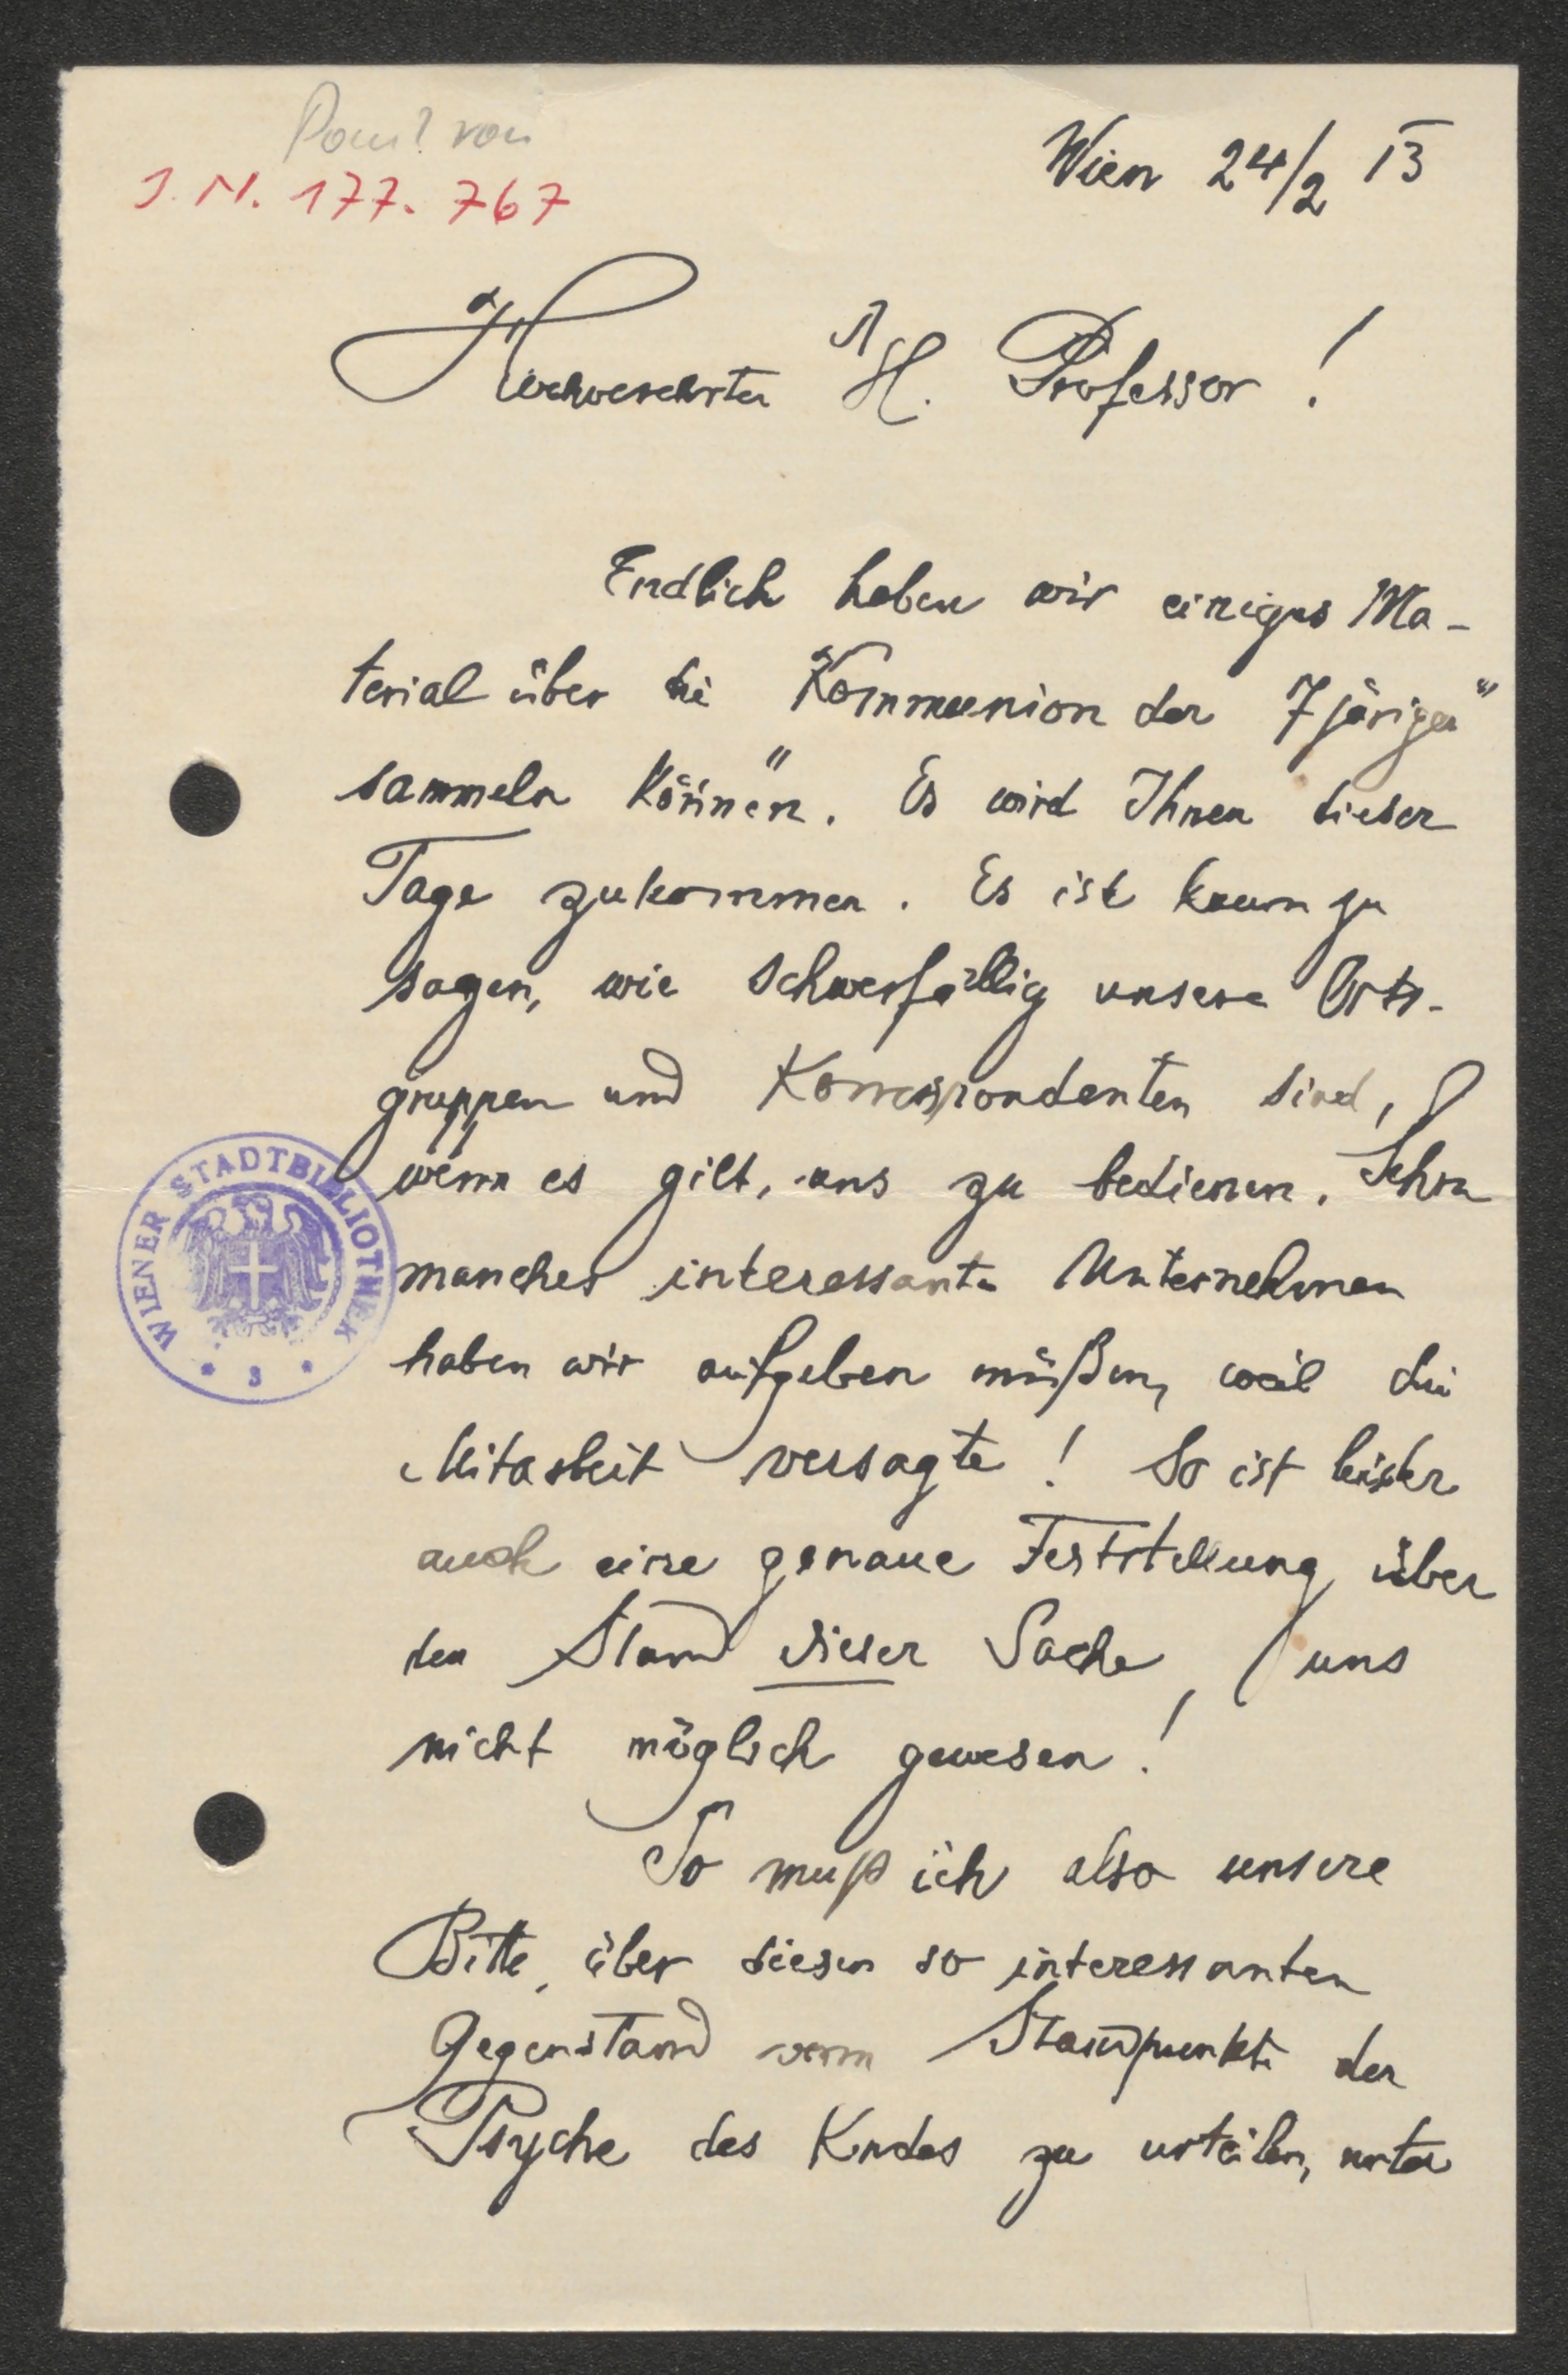 von
J. N. 177.767
Wien 24/2 13
Hochverehrter H. Professor!
Endlich haben wir einiges Ma-
terial über die "Kommunion der 7järigen"
sammeln können. Es wird Ihnen dieser
Tage zukommen. Es ist kaum zu
sagen, wie schwerfällig unsere Orts-
gruppen und Korrespondenten sind,
wenn es gilt, uns zu bedienen. Schon
manches interessante Unternehmen
haben wir aufgeben müßen, weil die
Mitarbeit versagte! So ist leider
auch eine genaue Feststellung über
den Stand dieser Sache, uns
nicht möglich gewesen!
So muß ich also unsere
Bitte, über diesen so interessanten
Gegenstand vom Standpunkte der
Psyche des Kindes zu urteilen, unter
WIENER STADTBIBLIOTHEK
* 3 *